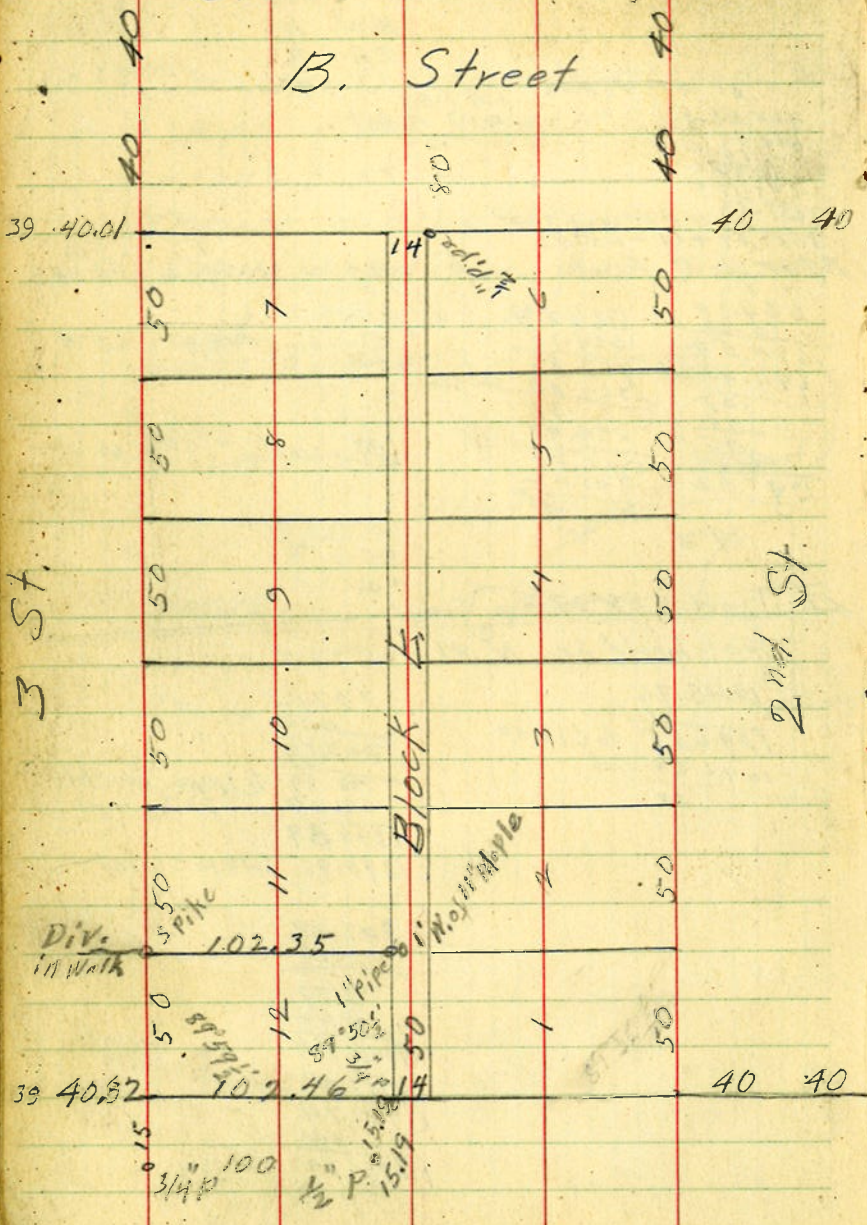 40 40
B. Street
40 80' 40
39 40.01 14 40 40
1/2" Pipe
50 7 6 50
50 8 5 50
3 St.
50 9 4 50
2nd. St.
Block
50 10 3 50
50 11 2 50
Spike
N. of 11" Maple
Div. 102.35 1'
in Walk
1" Pipe
50 12 50 1 50
89°59½'
89°50½'
3/4"
39 40.82 102.46 14 40 40
15 15.19
3/4" P 100 1/2" P. 15.19